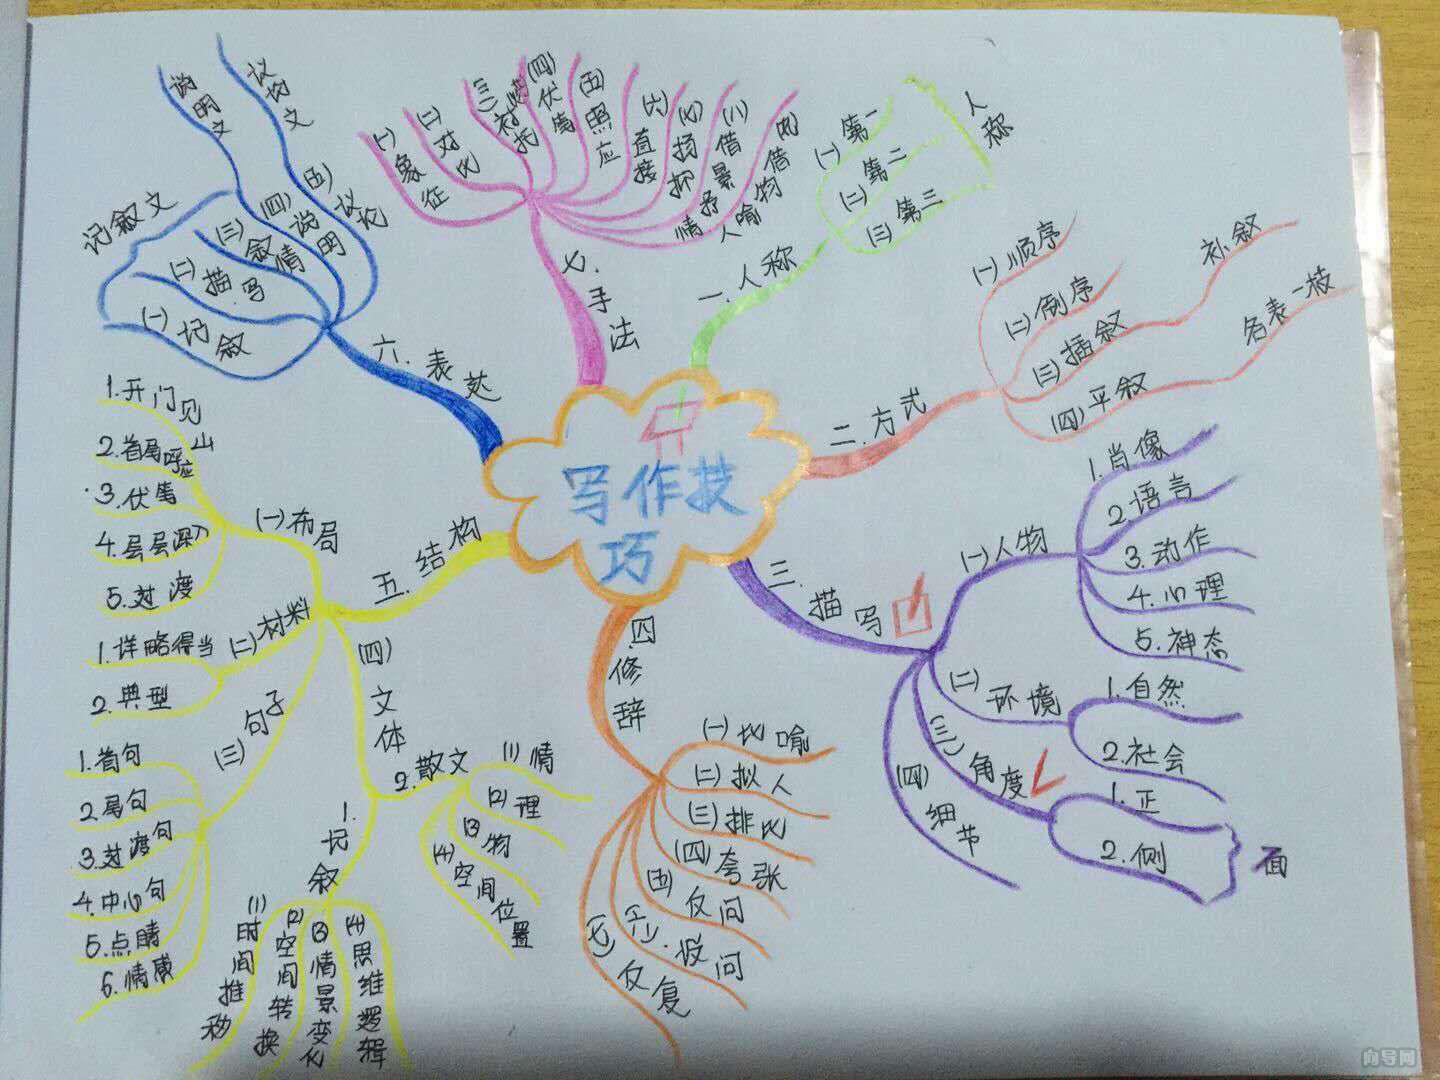 写作技
巧
一.人称
(一)第一
(二)第二
(三)第三
人称
二.方式
(一)顺序
(二)倒序
(三)插叙
补叙
(四)平叙
各表一枝
三.描写
(一)人物
1.肖像
2.语言
3.动作
4.心理
5.神态
(二)环境
1.自然
2.社会
(三)角度
1.正
2.侧
面
(四)细节
四.修辞
(一)比喻
(二)拟人
(三)排比
(四)夸张
(五)反问
(六).设问
(七)反复
五.结构
(一)布局
1.开门见山
2.首尾呼应
3.伏笔
4.层层深入
5.过渡
(二)材料
1.详略得当
2.典型
(三)句子
1.首句
2.尾句
3.过渡句
4.中心句
5.点睛
6.情感
(四)文体
1.记叙
(1)时间推移
(2)空间转换
(3)情景变化
(4)思维逻辑
2.散文
(1)情
(2)理
(3)物
(4)空间位置
六.表达
(一)记叙
(二)描写
(三)叙情
记叙文
(四)说明
说明文
(五)议论
议论文
七.手法
(一)象征
(二)对比
(三)衬托
(四)伏笔
(五)照应
(六)直接
(七)扬抑
(八)借景抒情
借物喻人
向导网